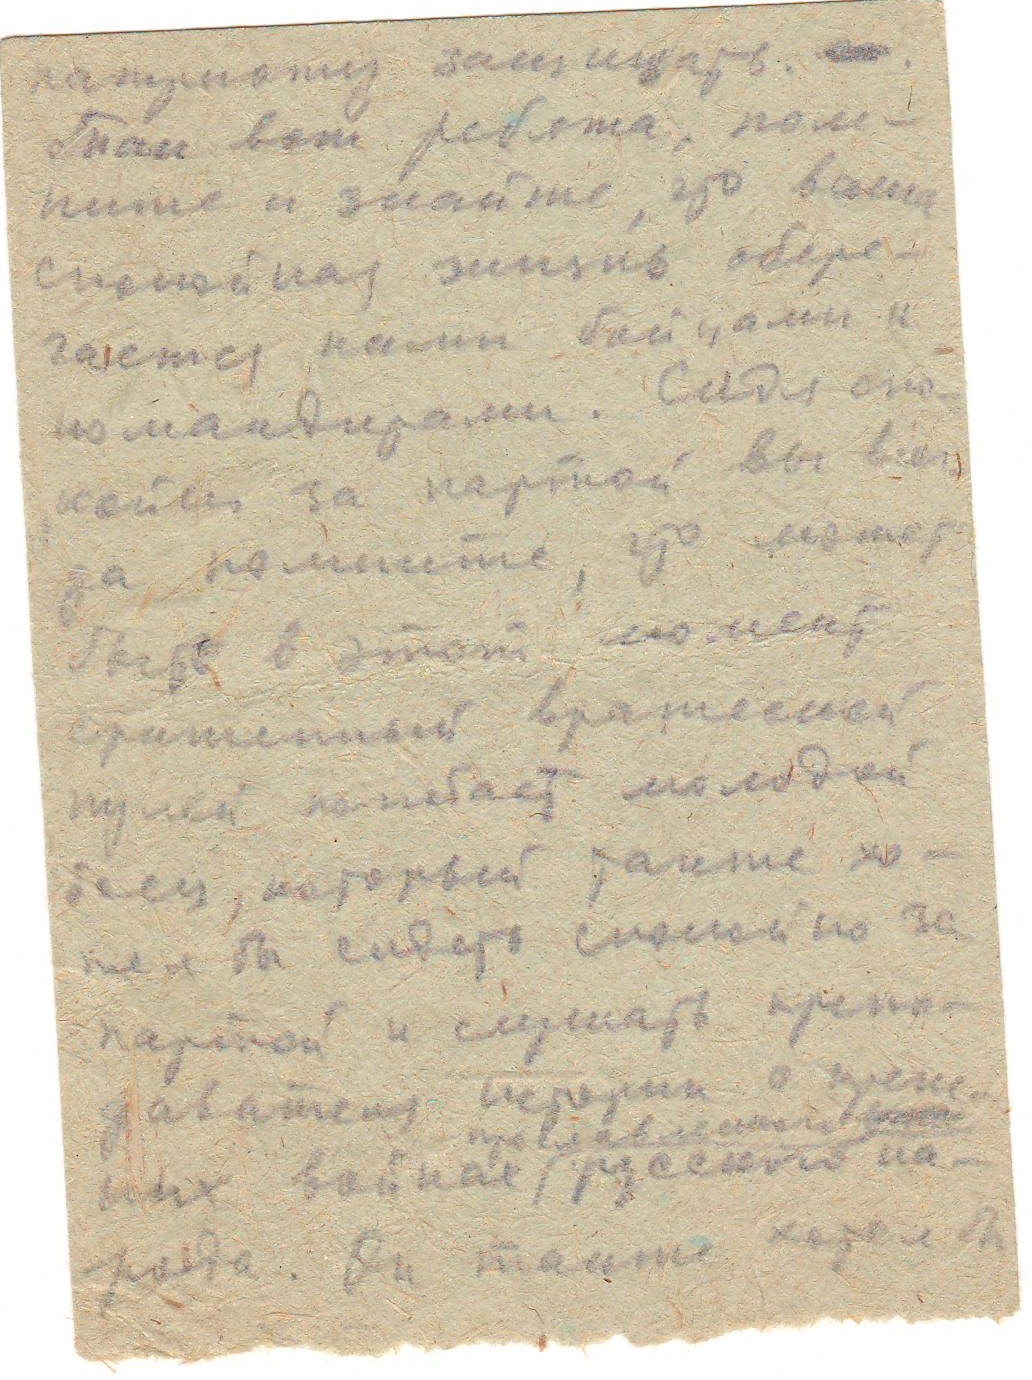 патриоту защищать.
Так вот ребята, пом-
ните и знайте, что ваша
спокойная жизнь обере-
гается нами бойцами и
командирами. Сидя спо-
койно за партой вы всег
да помните, что может
быть в этот момент
сраженный вражеской
пулей погибает молодой
боец, который также хо-
тел бы сидеть спокойно за
партой и слушать препо-
давателя истории о преж-
прославленного
них войнах русского на-
рода. Он также хотел бы